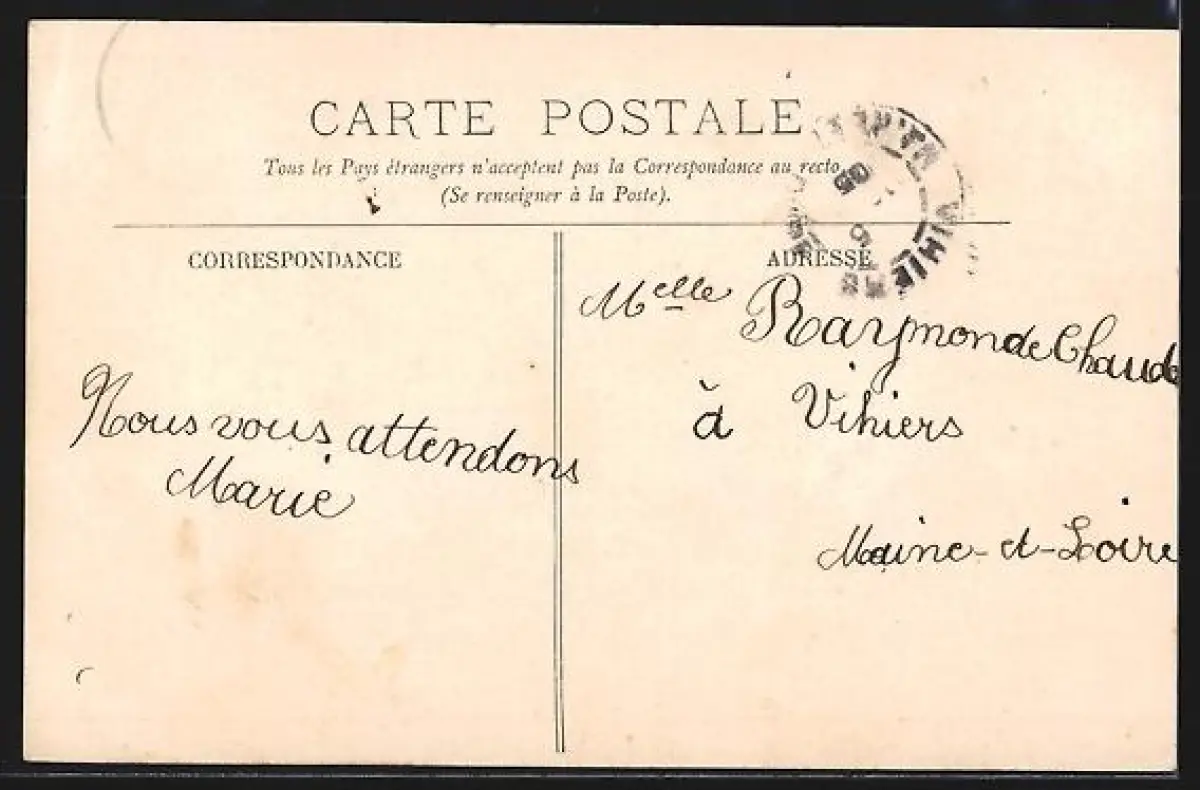 CARTE POSTALE
Tous les Pays étrangers n'acceptent pas la Correspondance au recto
(Se renseigner à la Poste).
CORRESPONDANCE
ADRESSE
Nous vous attendons
Marie
Melle Raymonde Chaude
à Vihiers
Maine-et-Loire
VIHIERS